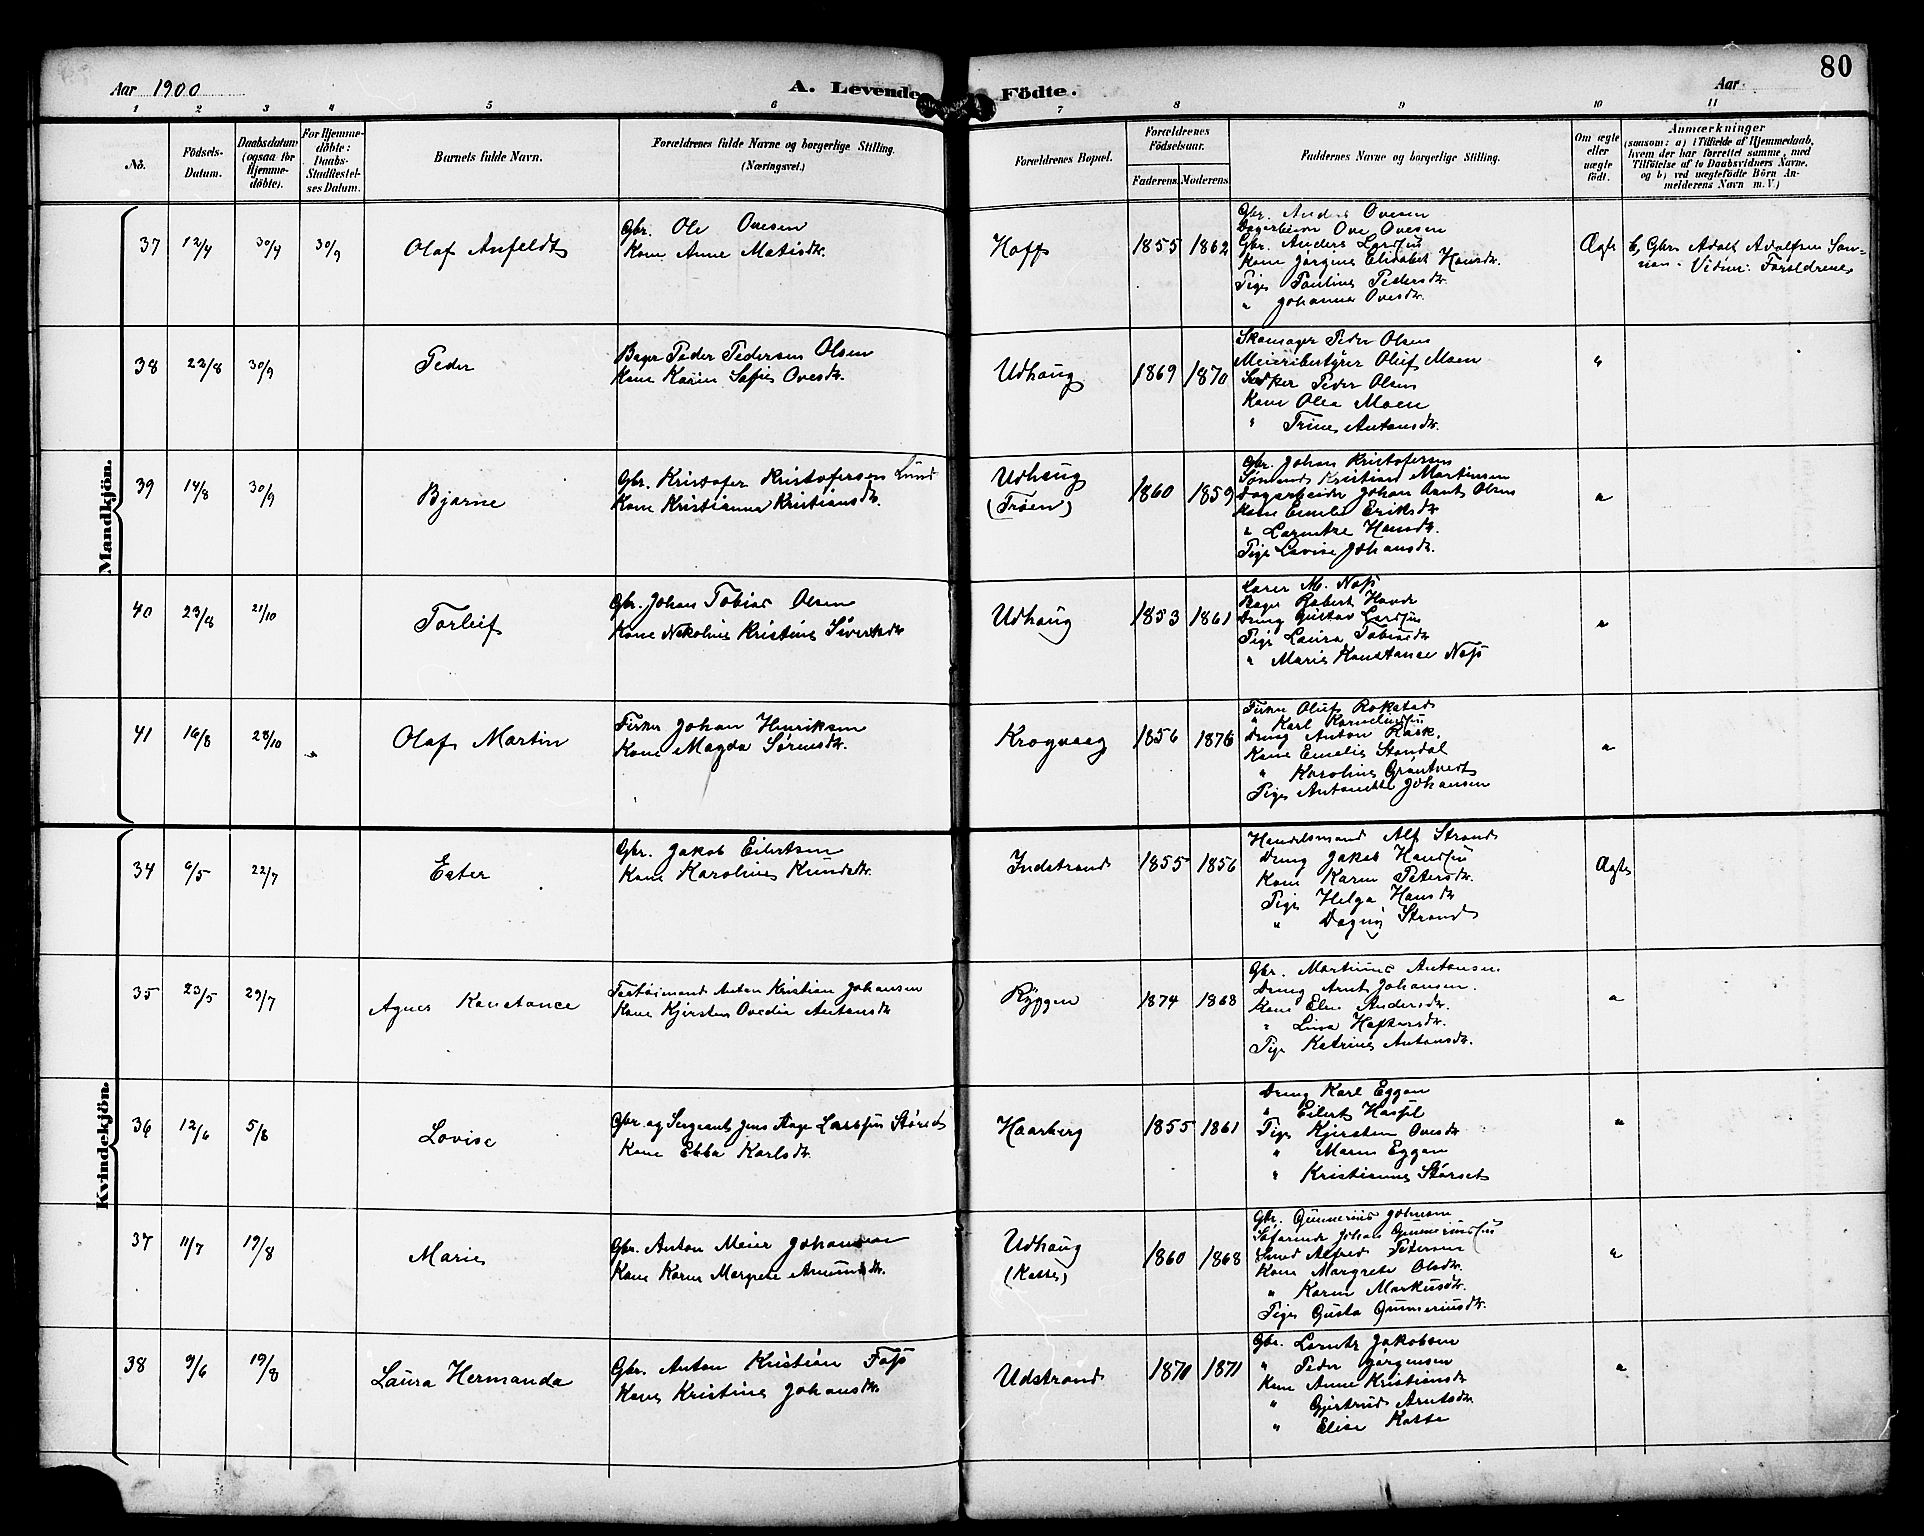 80
Aar 1900
A. Levende Födte.
Aar
1 2 3 4 5 6 7 8 9 10 11
No.
Födsels-Datum.
Daabsdatum (ogsaa for Hjemmedöbte).
For Hjemmedöbte: Daabs-Stadfæstelses Datum.
Barnets fulde Navn.
Forældrenes fulde Navne og borgerlige Stilling.
(Næringsvei.)
Forældrenes Bopæl.
Forældrenes Födselsaar.
Faderens. Moderens.
Faddernes Navne og borgerlige Stilling.
Om ægte eller uægte födt.
Anmærkninger
(saasom: a) i Tilfælde af Hjemmedaab,
hvem der har forrettet samme, med
Tilföielse af to Daabsvidners Navne,
og b) ved uægtefödte Börn Anmelderens Navn m. V.)
Mandkjön.
37 12/4 30/9 30/9 Olaf Anfeldt
Gbr. Ole Ovesen
Kone Anne Matisdtr.
Hoff 1855 1862
Gbr. Anders Ovesen
Dagarbeider Ove Ovesen
Gbr. Anders Larssen
Kone Jørgine Elisabet Hansdtr.
Pige Pauline Pedersdtr.
" Johanna Ovesdtr.
Ægte
Gbr. Adolf Adolfsen
Vidner: Forældrene
38 22/8 30/9 Peder
Bager Peder Pedersen Olsen
Kone Karin Sofie Ovesdtr.
Udhaug 1869 1870
Skomager Peder Olsen
Meieribestyrer Oluf Moen
Bødker Peder Olsen
Kone Olea Moen
" Trine Antonsdtr.
"
39 14/8 30/9 Bjarne
Gbr. Kristofer Kristofersen Lund
Kone Kristianna Kristiansdtr.
Udhaug
(Trøen)
1860 1859
Gbr. Johan Kristofersen
Sømand Kristian Martinsen
Dagarbeider Johan Arnt Olsen
Kone Emelie Eriksdtr.
" Larentze Hansdtr.
Pige Lovise Johansdtr.
"
40 23/8 21/10 Torleif
Gbr. Johan Tobias Olsen
Kone Nekoline Kristine Sivertsdtr
Udhaug 1853 1861
M. Næss
Bager Robert Hovde
Dreng Gustav Larssen
Pige Laura Tobiasdtr
" Marie Konstance Næss
"
41 16/8 28/10 Olaf Martin
Fisker Johan Henriksen
Kone Magda Sørensdtr.
Krogvaag 1856 1876
Fisker Oluf Rokstad
" Karl Korneliussen
Dreng Anton Kask.
Kone Emelie Standal
" Karoline Grøntvedt
Pige Antonette Johansen
"
Kvindekjön.
34 6/5 22/7 Ester
Gbr. Jakob Eilertsen
Kone Karoline Knudsdtr.
Indstrand 1855 1856
Handelsmand Alf Strand
Dreng Jakob Hanssen
Kone Karen Petersdtr.
Pige Helga Hansdtr
" Dagny Strand
Ægte
35 23/5 29/7 Agnes Konstance
Anton Kristian Johansen
Kone Kjersten Ovedia Antonsdtr
Ryggen 1874 1868
Gbr. Martinus Antonsen
Dreng Arnt Johansen.
Kone Elen Andersdtr.
" Lina Haftorsdtr.
Pige Katrine Antonsdtr.
"
36 12/6 5/8 Lovise
Gbr. og Sergeant Jens Aage Larssen Størset
Kone Ebba Karlsdtr.
Haarberg 1855 1861
Dreng Karl Eggen
" Eilert Hassel
Pige Kjersten Ovesdtr
" Maren Eggen
" Kristianne Størset
"
37 11/7 19/8 Marie
Gbr. Anton Meier Johansen
Kone Karen Margrete Amundsdtr.
Udhaug
(Katten)
1860 1868
Gbr. Gunnerius Johnsen
Søfarende Johan Gunneriussen
Smed Alfred Pedersen
Kone Margrete Olsdtr.
" Karen Markusdtr.
Pige Gusta Gunneriusdtr.
"
38 9/6 19/8 Laura Hermanda
Gbr. Anton Kristian Foss
Kone Kristine Johansdtr.
Udstrand 1870 1871
Gbr. Lorntz Jakobsen
" Peder Jørgensen
Kone Anne Kristiansdtr
" Gjertrud Arntsdtr
" Elise Katte
"